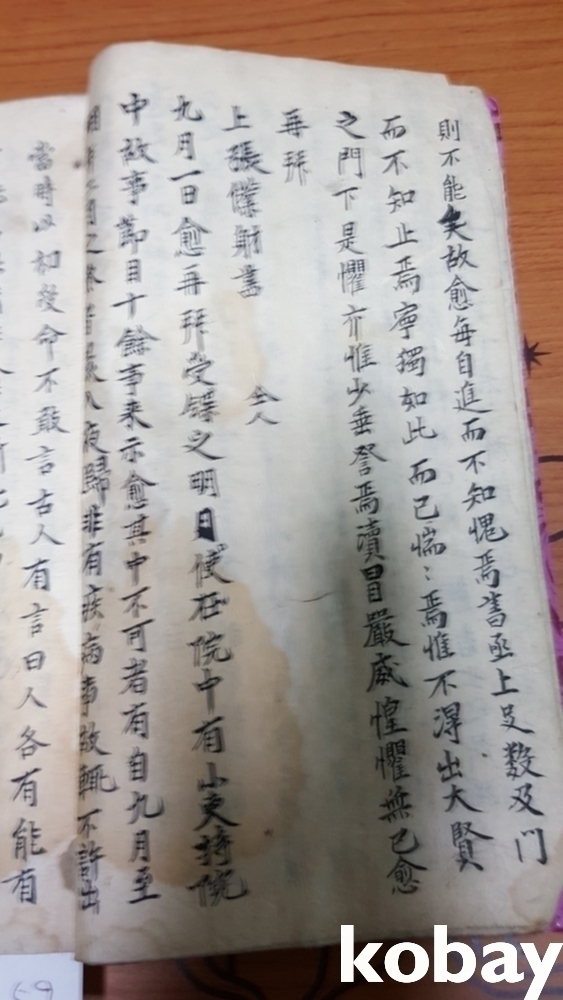 則不能矣故愈每自進而不知愧焉書亟上足数及門
而不知止焉寧獨如此而已惴〻焉惟不淂出大賢
之門下是懼亦惟少垂詧焉瀆冒嚴威惶懼無已愈
再拜
上張僕射書 仝人
九月一日愈再拜受牒之明日使在院中有小吏持院
中故事節目十餘事来示愈其中不可者有自九月至
二月之終皆晨入夜歸非有疾病事故輒不許出
當時以初受命不敢言古人有言曰人各有能有
kobay